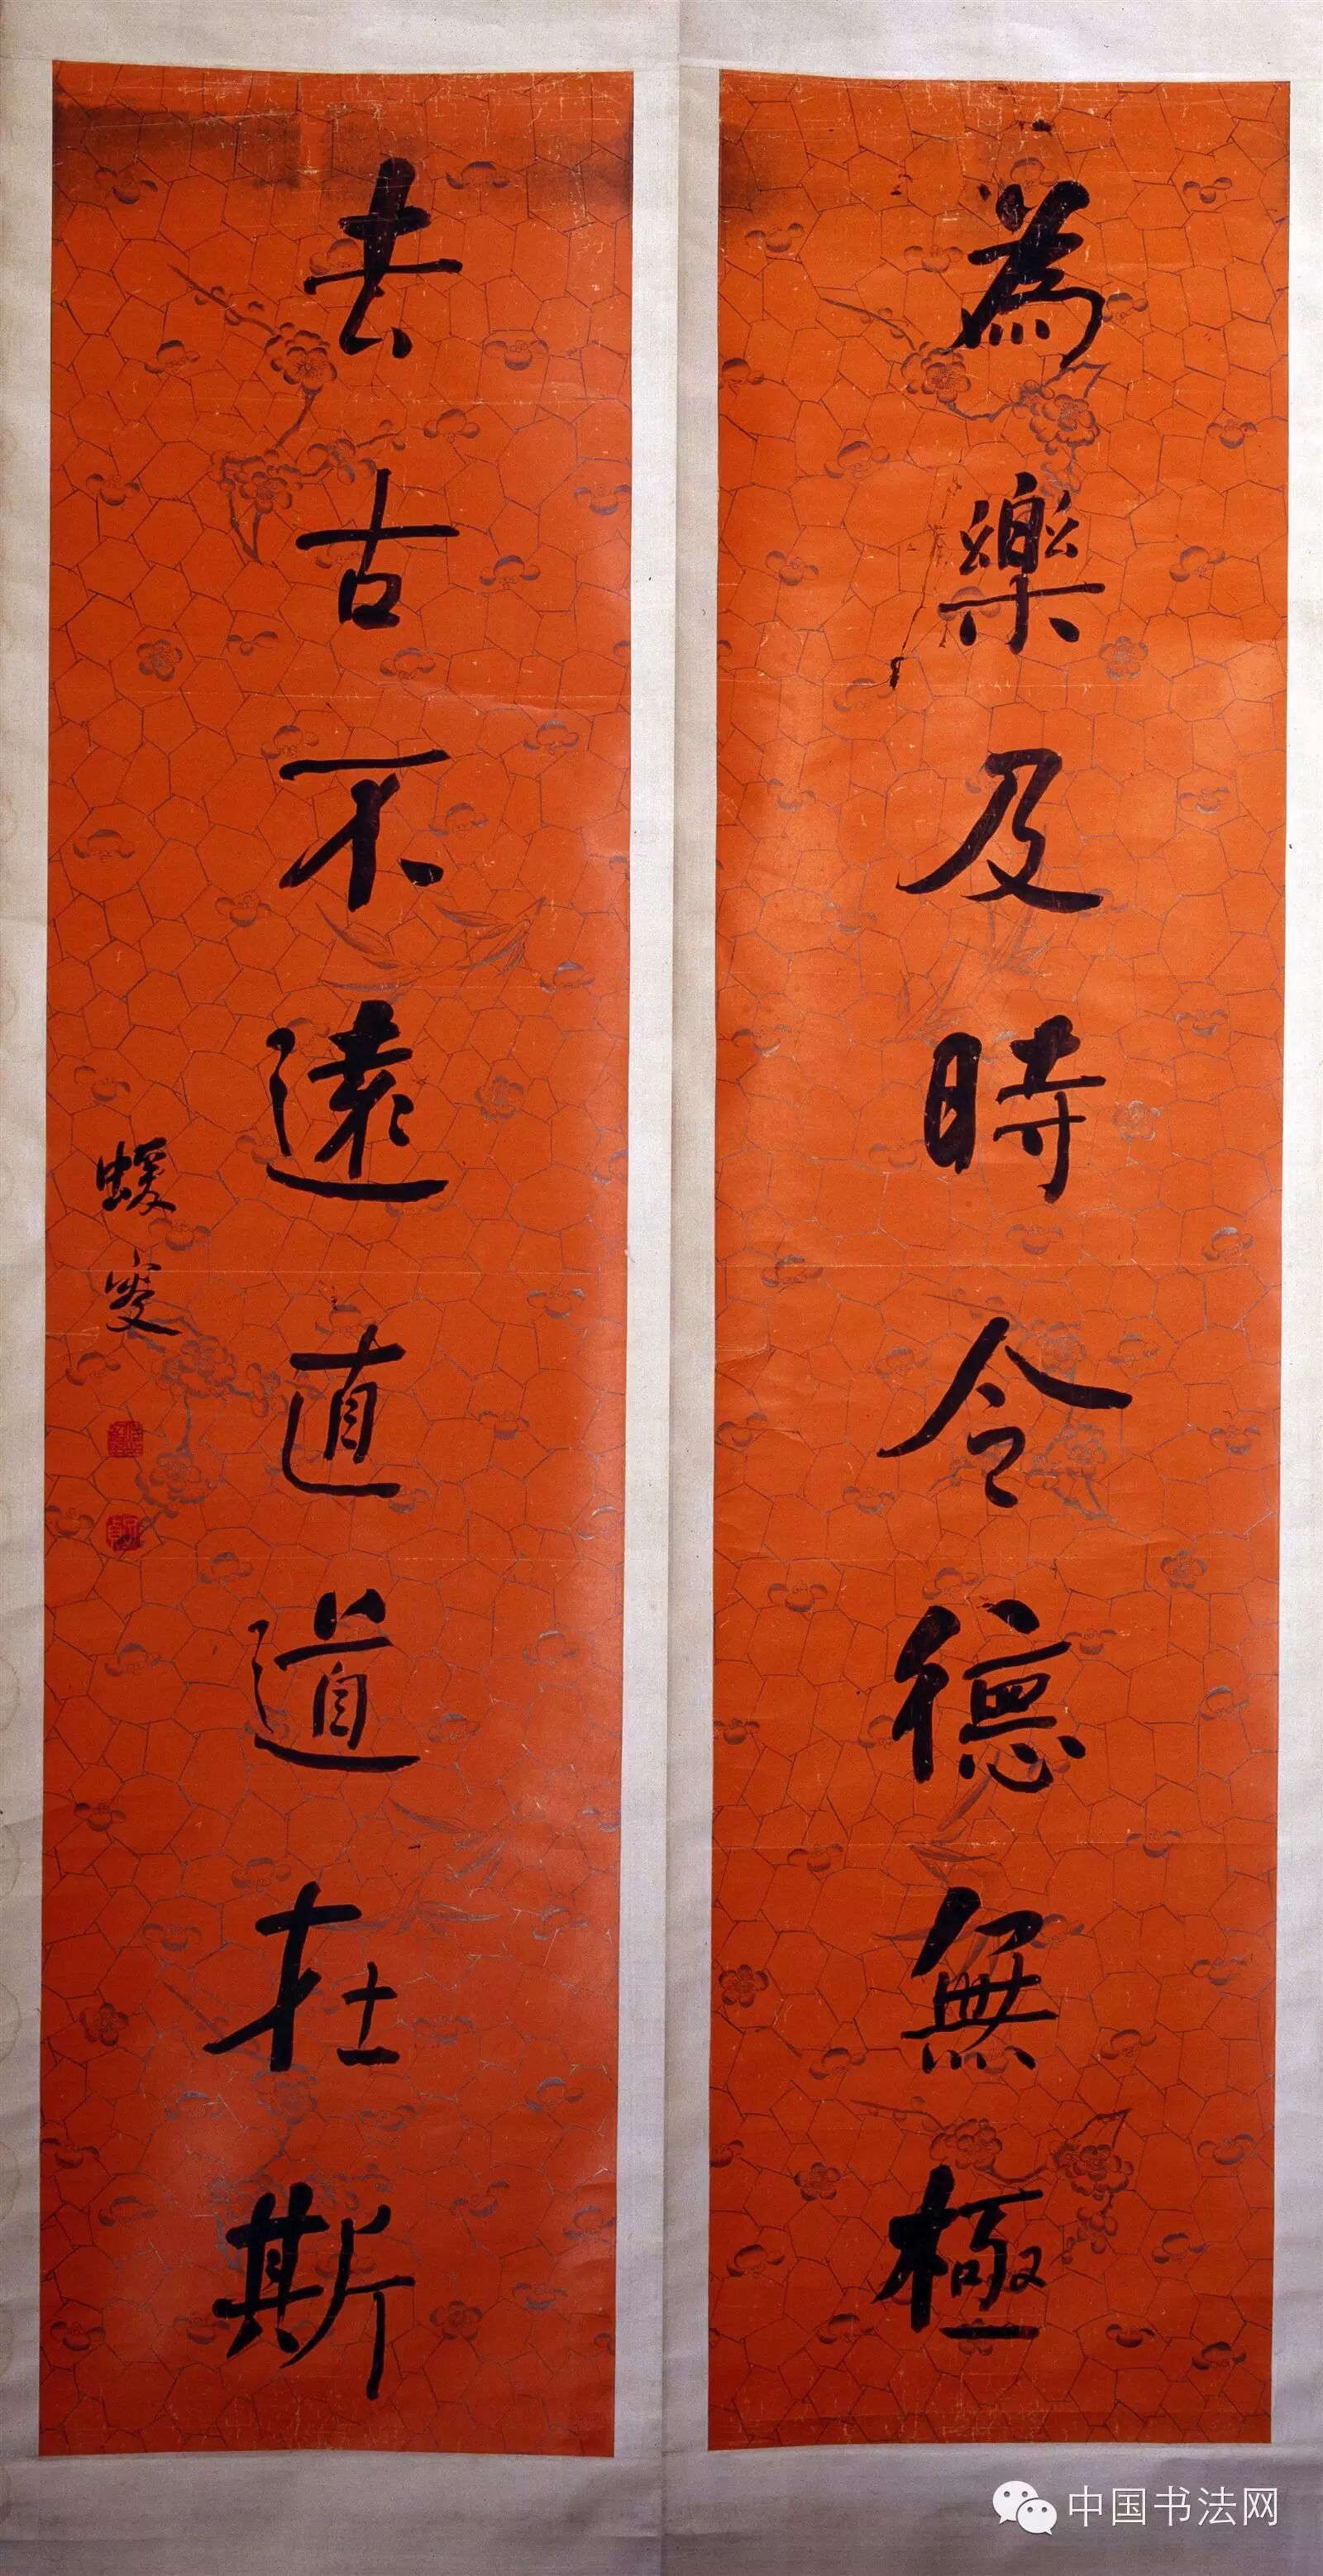 為樂及時令德無極
去古不遠直道在斯
蝯叟
中国书法网